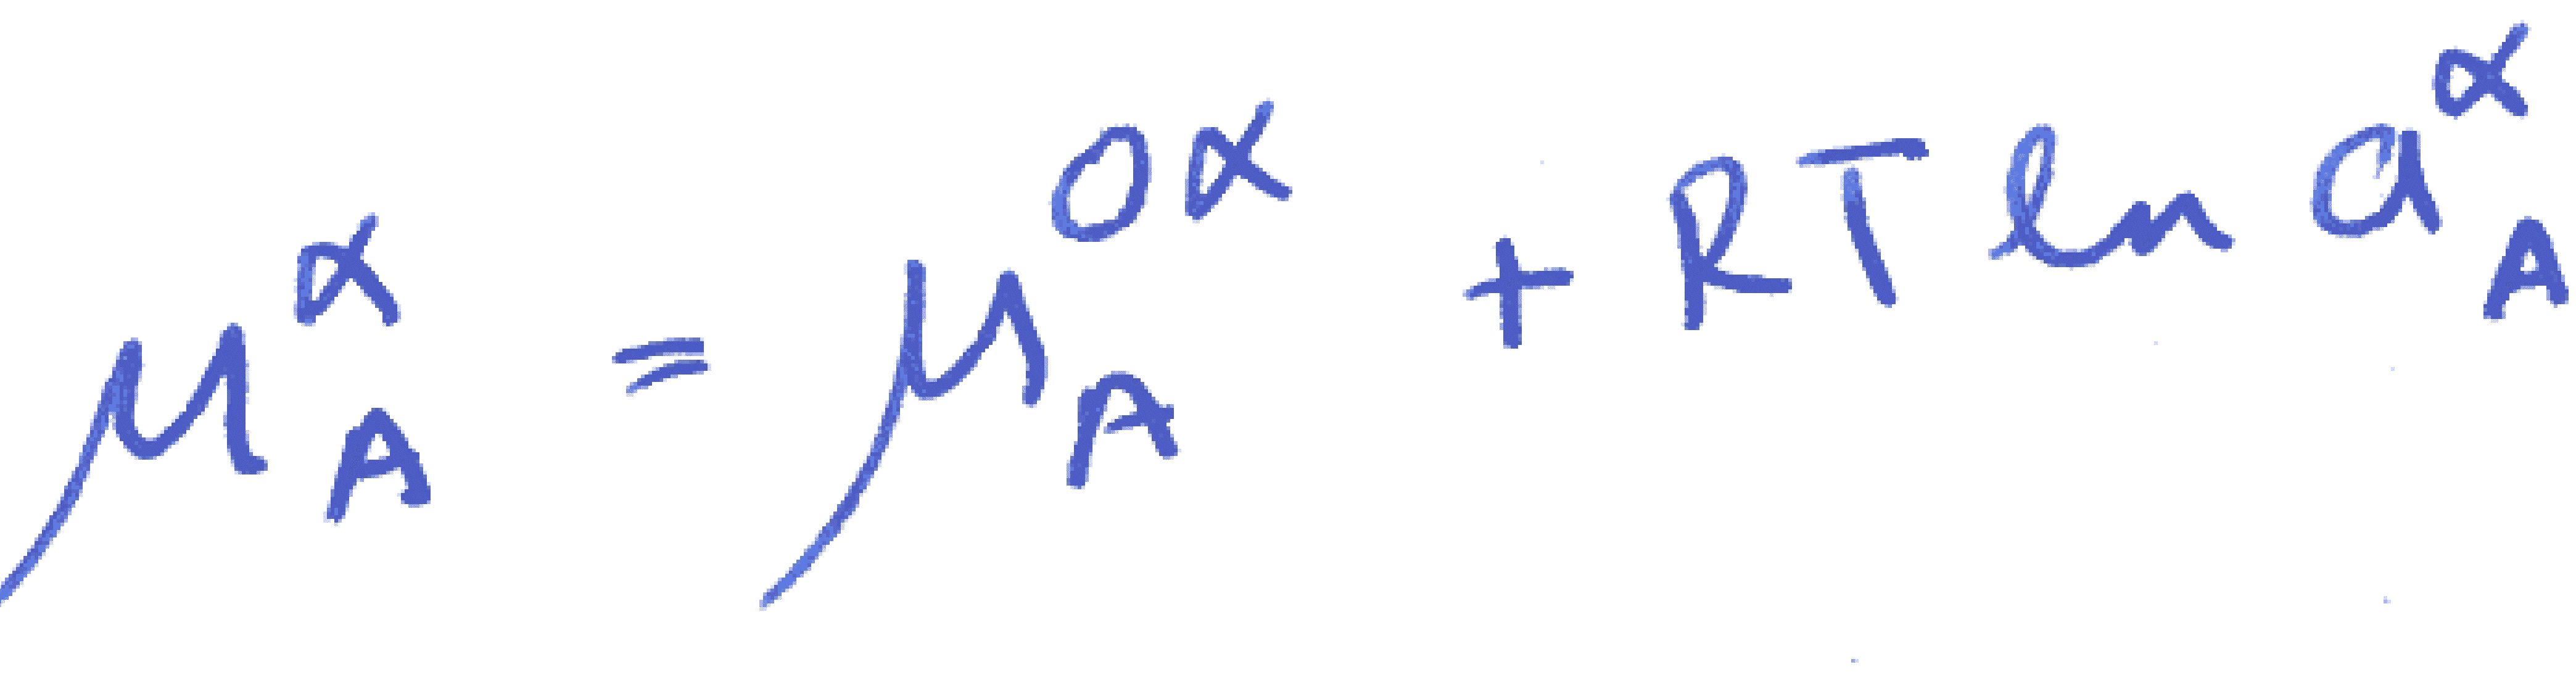 μ_A^α = μ_A^{0α} + RT ln a_A^α